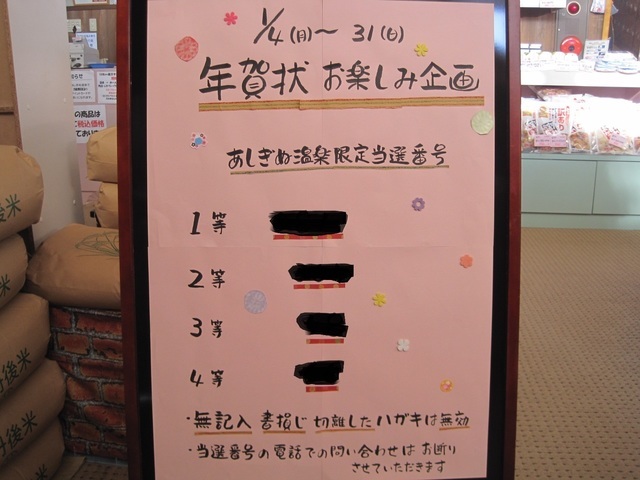 1/4(月)～31(日)
年賀状 お楽しみ企画
あしぎぬ温泉限定当選番号
1等
2等
3等
4等
・無記入 書損じ 切離したハガキは無効
・当選番号の電話での問い合わせは お断り
させていただきます
の商品は
税込価格
後米
丹後米